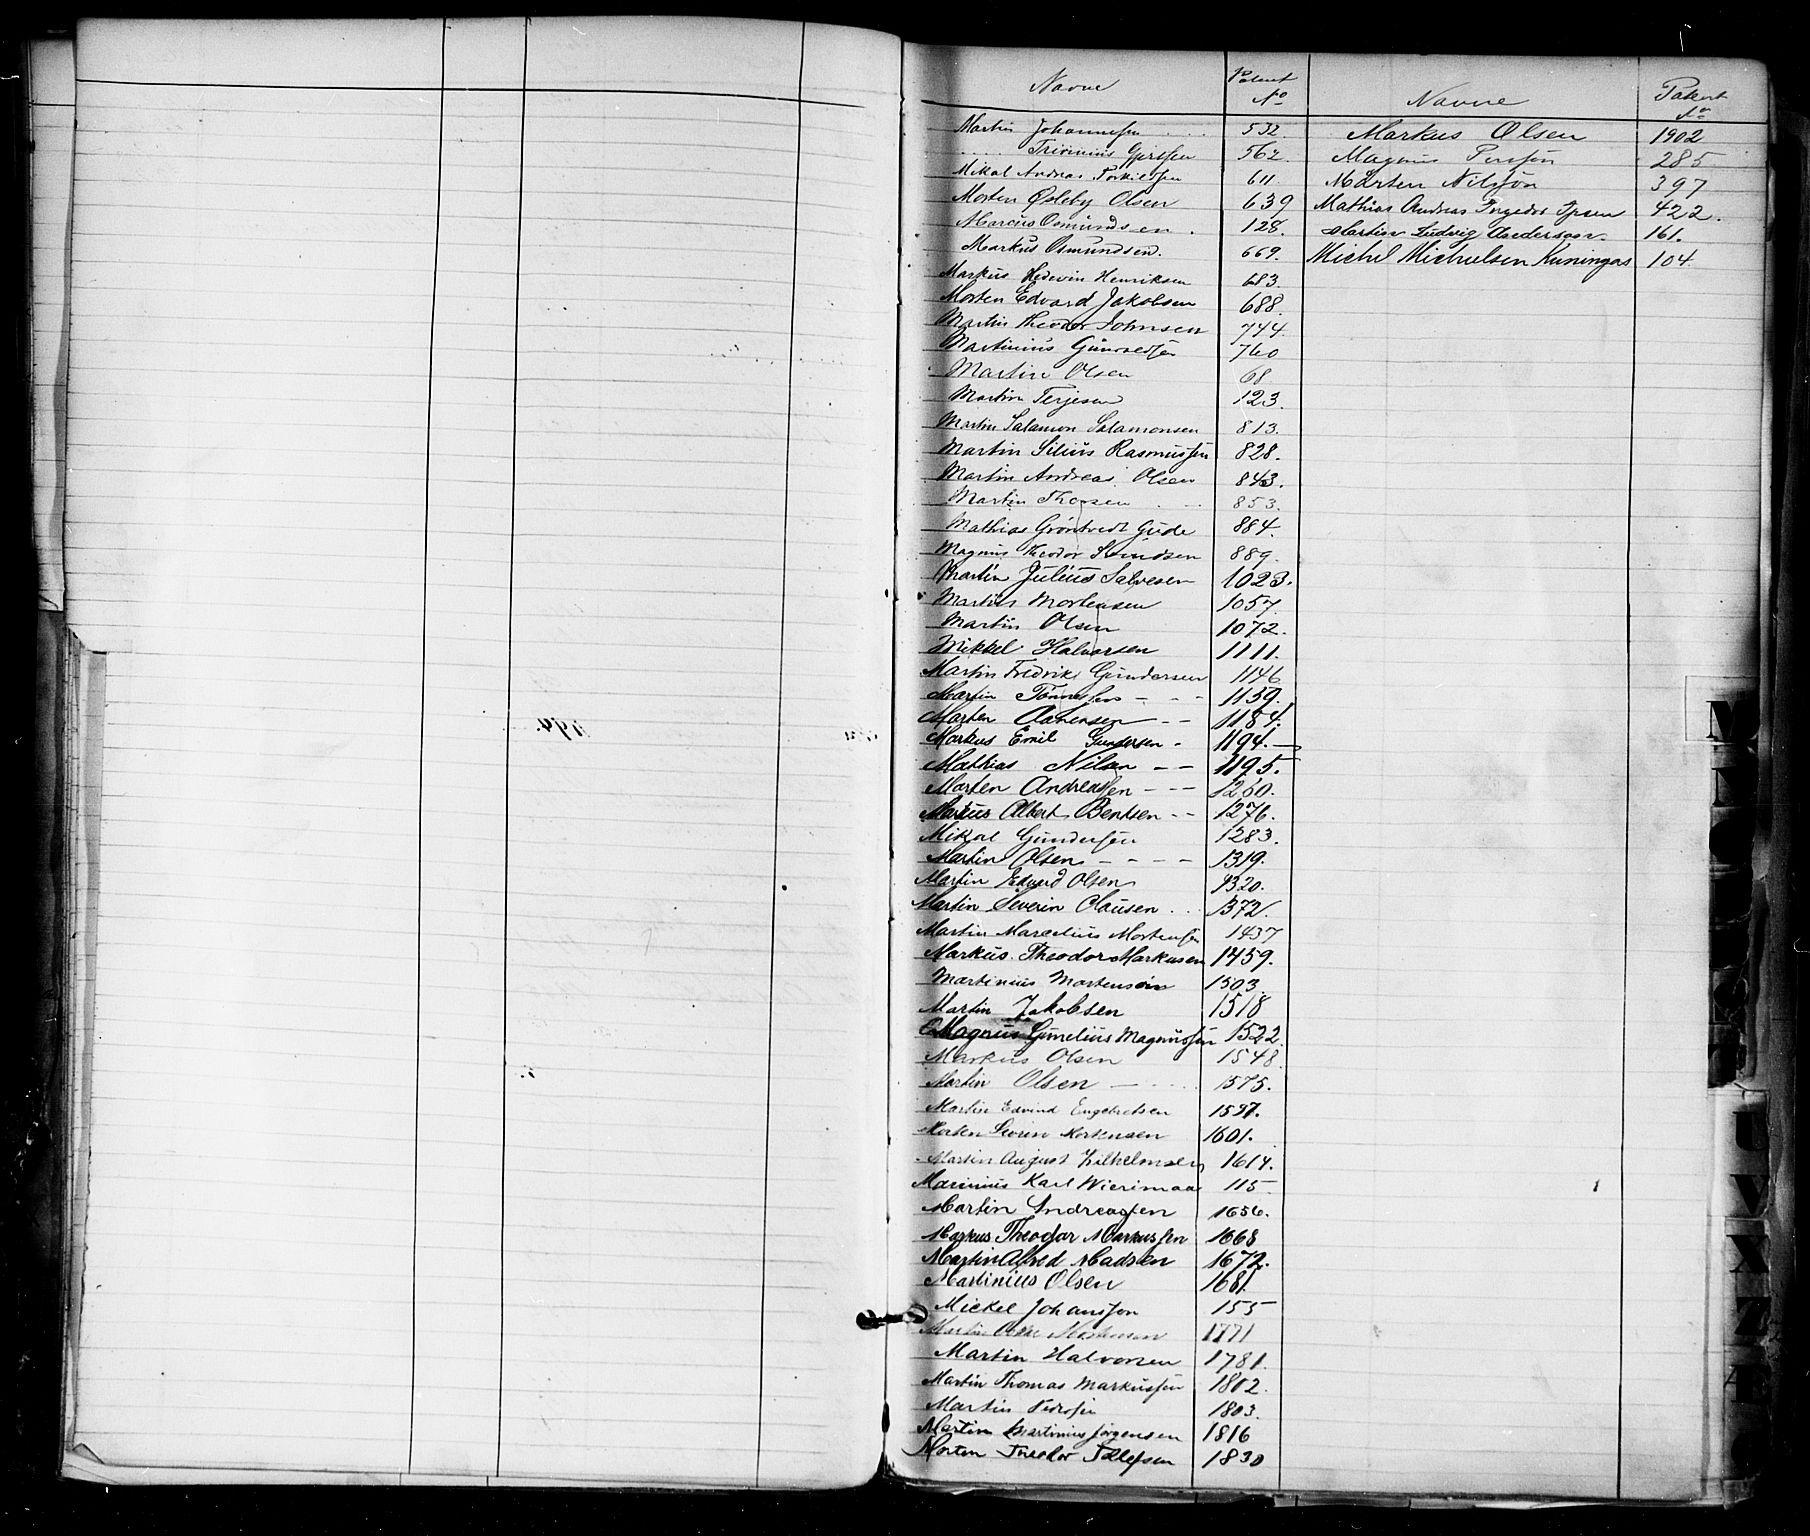 Navne Patent No
Martin Johannesen 532
Mikal Andreas Torkildsen 611.
Morten Øsleby Olsen 639
Marcus Osmundsen. 128.
Markus Osmundsen. 669.
Markus Hedevin Henriksen 683.
Morten Edvard Jakobsen 688.
Martin Theodor Johnsen 744.
Martinius Gunvaldsen 760
Martin Olsen 68
Martin Terjesen 123.
Martin Salamon Salamonsen 813.
Martin Silius Rasmussen 828.
Martin Andreas Olsen 843.
Martin Thorsen 853.
Mathias Gröntvedt Gude 884.
Magnus Theodor Svendsen 889.
Martin Julius Salvesen 1023.
Martin Mortensen 1057.
Martin Olsen 1072.
Mikkel Halvorsen 1111.
Martin Fredrik Gundersen 1146
Martin Tönnesen 1159.
Marten Aanensen 1184.
Markus Emil Gundersen 1194.
Mathias Nilsen 1195.
Marten Andreassen 1260.
Markus Albert Bentsen 1276.
Mikal Gundersen 1283.
Martin Olsen 1319.
Martin Edvard Olsen 1320.
Martin Severin Clausen 1372.
Martin Marcelius Mortensen 1437
Markus Theodor Markusen 1459.
Martinius Mortensen 1503.
Martin Jakobsen 1518
Magnus Gunelius Magnussen 1522.
Markus Olsen 1548.
Martin Olsen 1575.
Martin Edvind Engebretsen 1597.
Morten Severin Mortensen 1601.
Martin August Vilhelmsen 1614.
Marinius Karl Wierimaa 115
Martin Andreassen 1656.
Markus Theodor Markussen 1668
Martin Alfred Madsen 1672.
Martinius Olsen 1681.
Mickel Johansson 155
Martin Mortensen 1771
Martin Halvorsen 1781.
Martin Thomas Markussen 1802.
Martin Pedersen 1803.
Martin Martinius Jörgensen 1816
Morten Theodor Tellefsen 1830
Navne Patent No
Markus Olsen 1902
Magnus Persson 285
Mårten Nilsson 397
Mathias Andreas Ipsen 422.
Martin Ludvig Anderson. 161.
Michel Michielsen Kuningas 104
M
U
V
X
Z